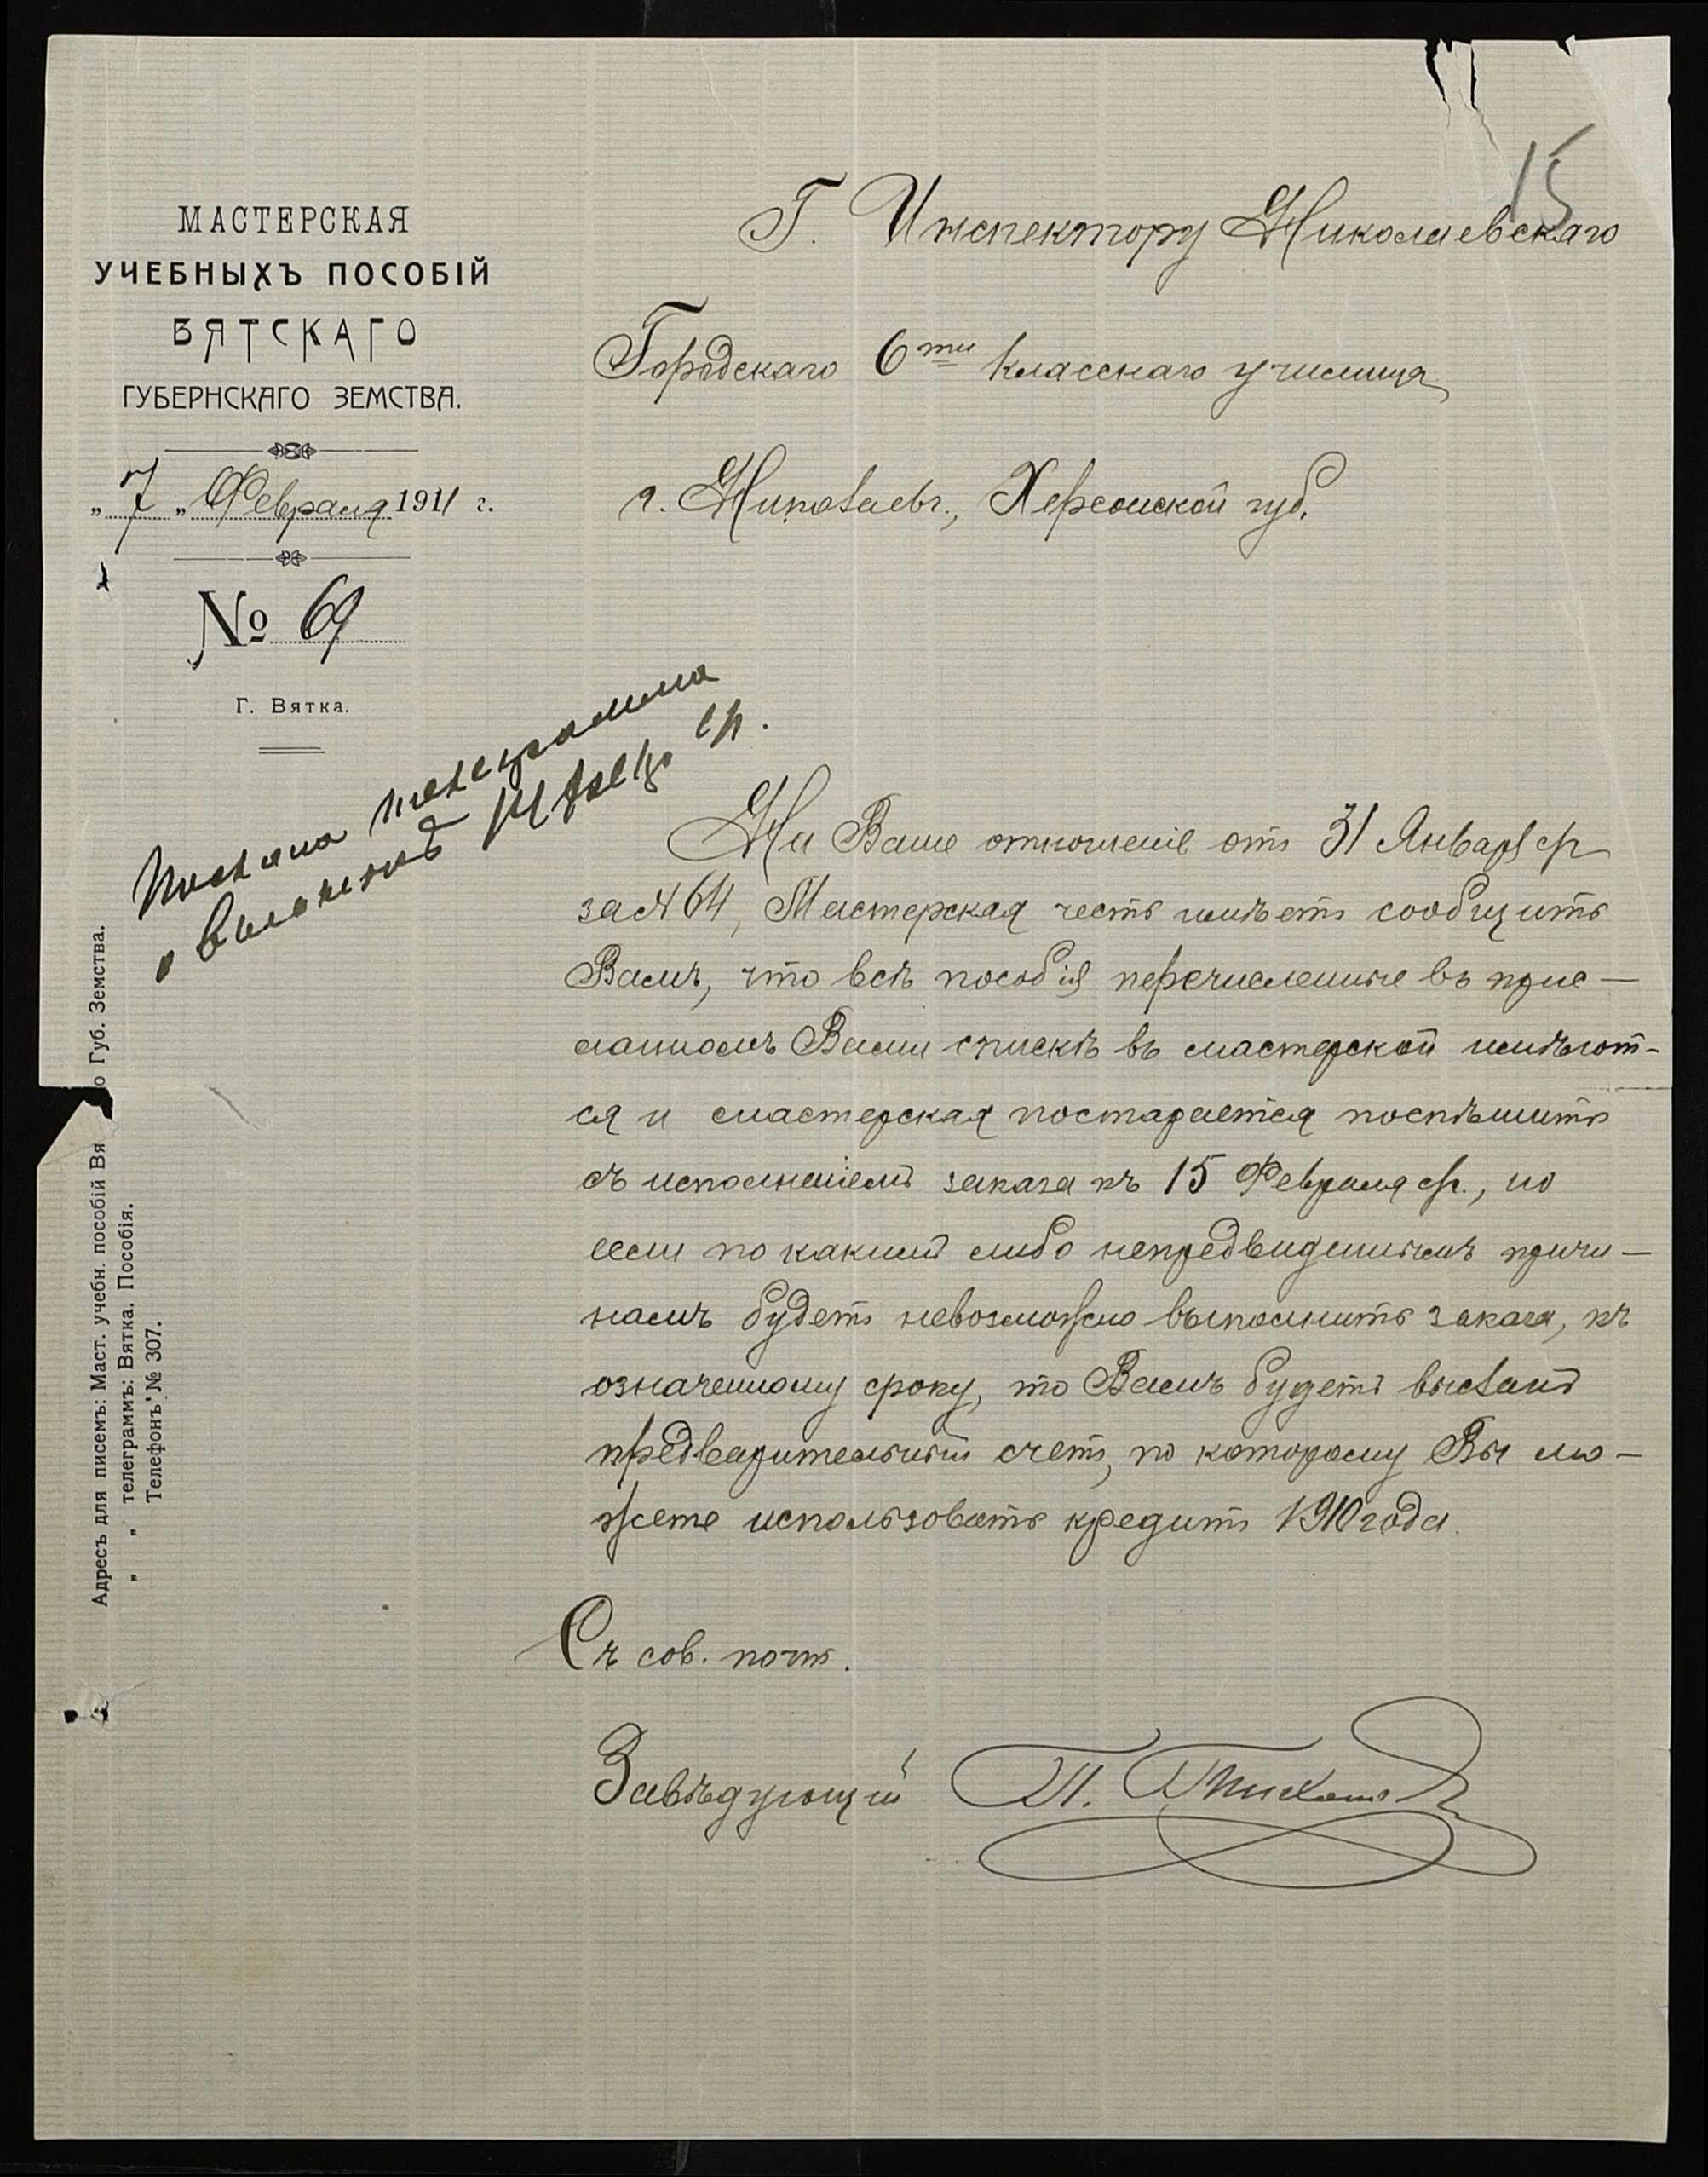 15
МАСТЕРСКАЯ
УЧЕБНЫХЪ ПОСОБІЙ
ВЯТСКАГО
ГУБЕРНСКАГО ЗЕМСТВА.
„ 7 „ Февраля 1911 г.
№ 69
Г. Вятка.
Г. Инспектору Николаевскаго
Городскаго 6ти класснаго училища
г. Николаевъ, Херсонской губ.
Послана телеграмма
о
На Ваше отношеніе отъ 31 Января ср
за № 64, Мастерская честь имѣетъ сообщить
Вамъ, что всѣ пособія перечисленные въ прис-
ланномъ Вами спискѣ въ мастерской имѣют-
ся и мастерская постарается поспѣшить
съ исполненіемъ заказа къ 15 Февраля ср., но
если по какимъ либо непредвидѣннымъ причи-
намъ будетъ невозможно выполнить заказа, къ
означенному сроку, то Вамъ будетъ высланъ
предварительный счетъ, по которому Вы мо-
жете использовать кредитъ 1910 года.
Съ сов. почт.
Завѣдующій
Адресъ для писемъ: Маст. учебн. пособій Вя о Губ. Земства.
„ „ телеграммъ: Вятка. Пособія.
Телефонъ № 307.